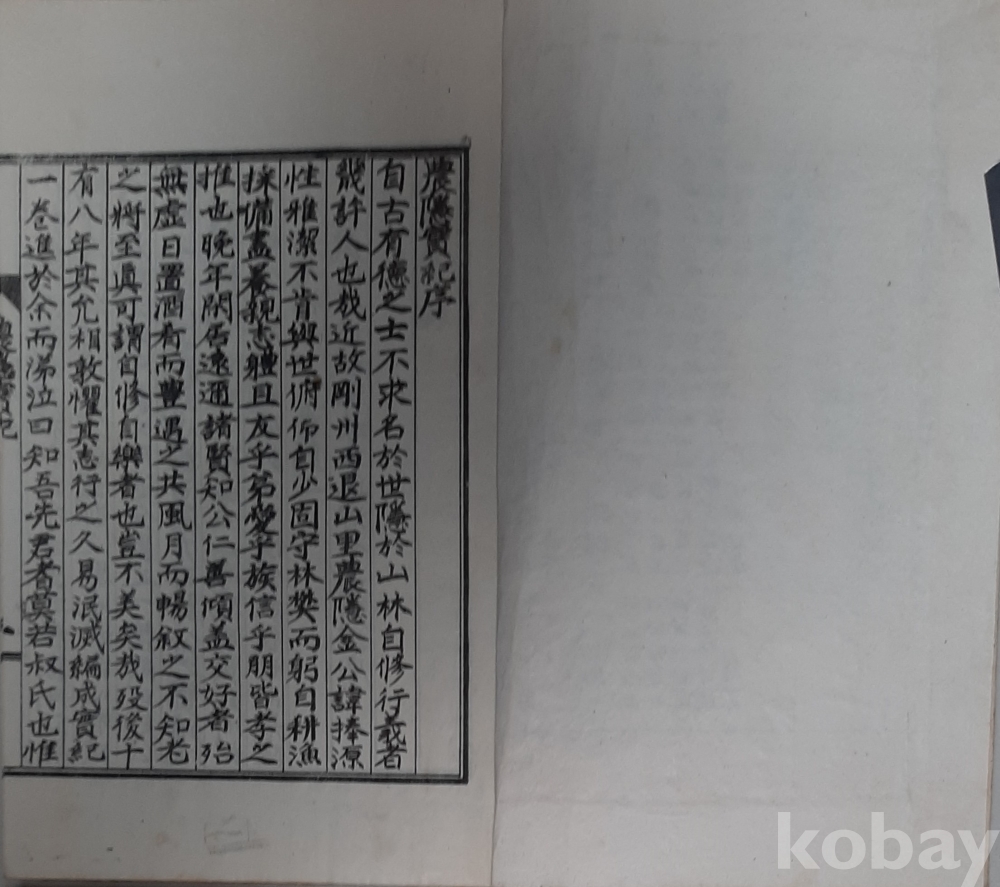 農隱實紀序
自古有德之士不求名於世隱於山林自修行義者
幾許人也哉近故剛州西退山里農隱金公諱捧源
性雅潔不肯與世俯仰自少固守林樊而躬自耕漁
採備盡養親志體且友乎弟愛乎族信乎朋皆孝之
推也晩年閑居遠邇諸賢知公仁善傾盖交好者殆
無虛日置酒肴而豐遇之共風月而暢敘之不知老
之將至眞可謂自修自樂者也豈不美矣哉歿後十
有八年其允相敦懼其志行之久易泯滅編成實紀
一卷進於余而涕泣曰知吾先君者莫若叔氏也惟
農隱實紀
kobay